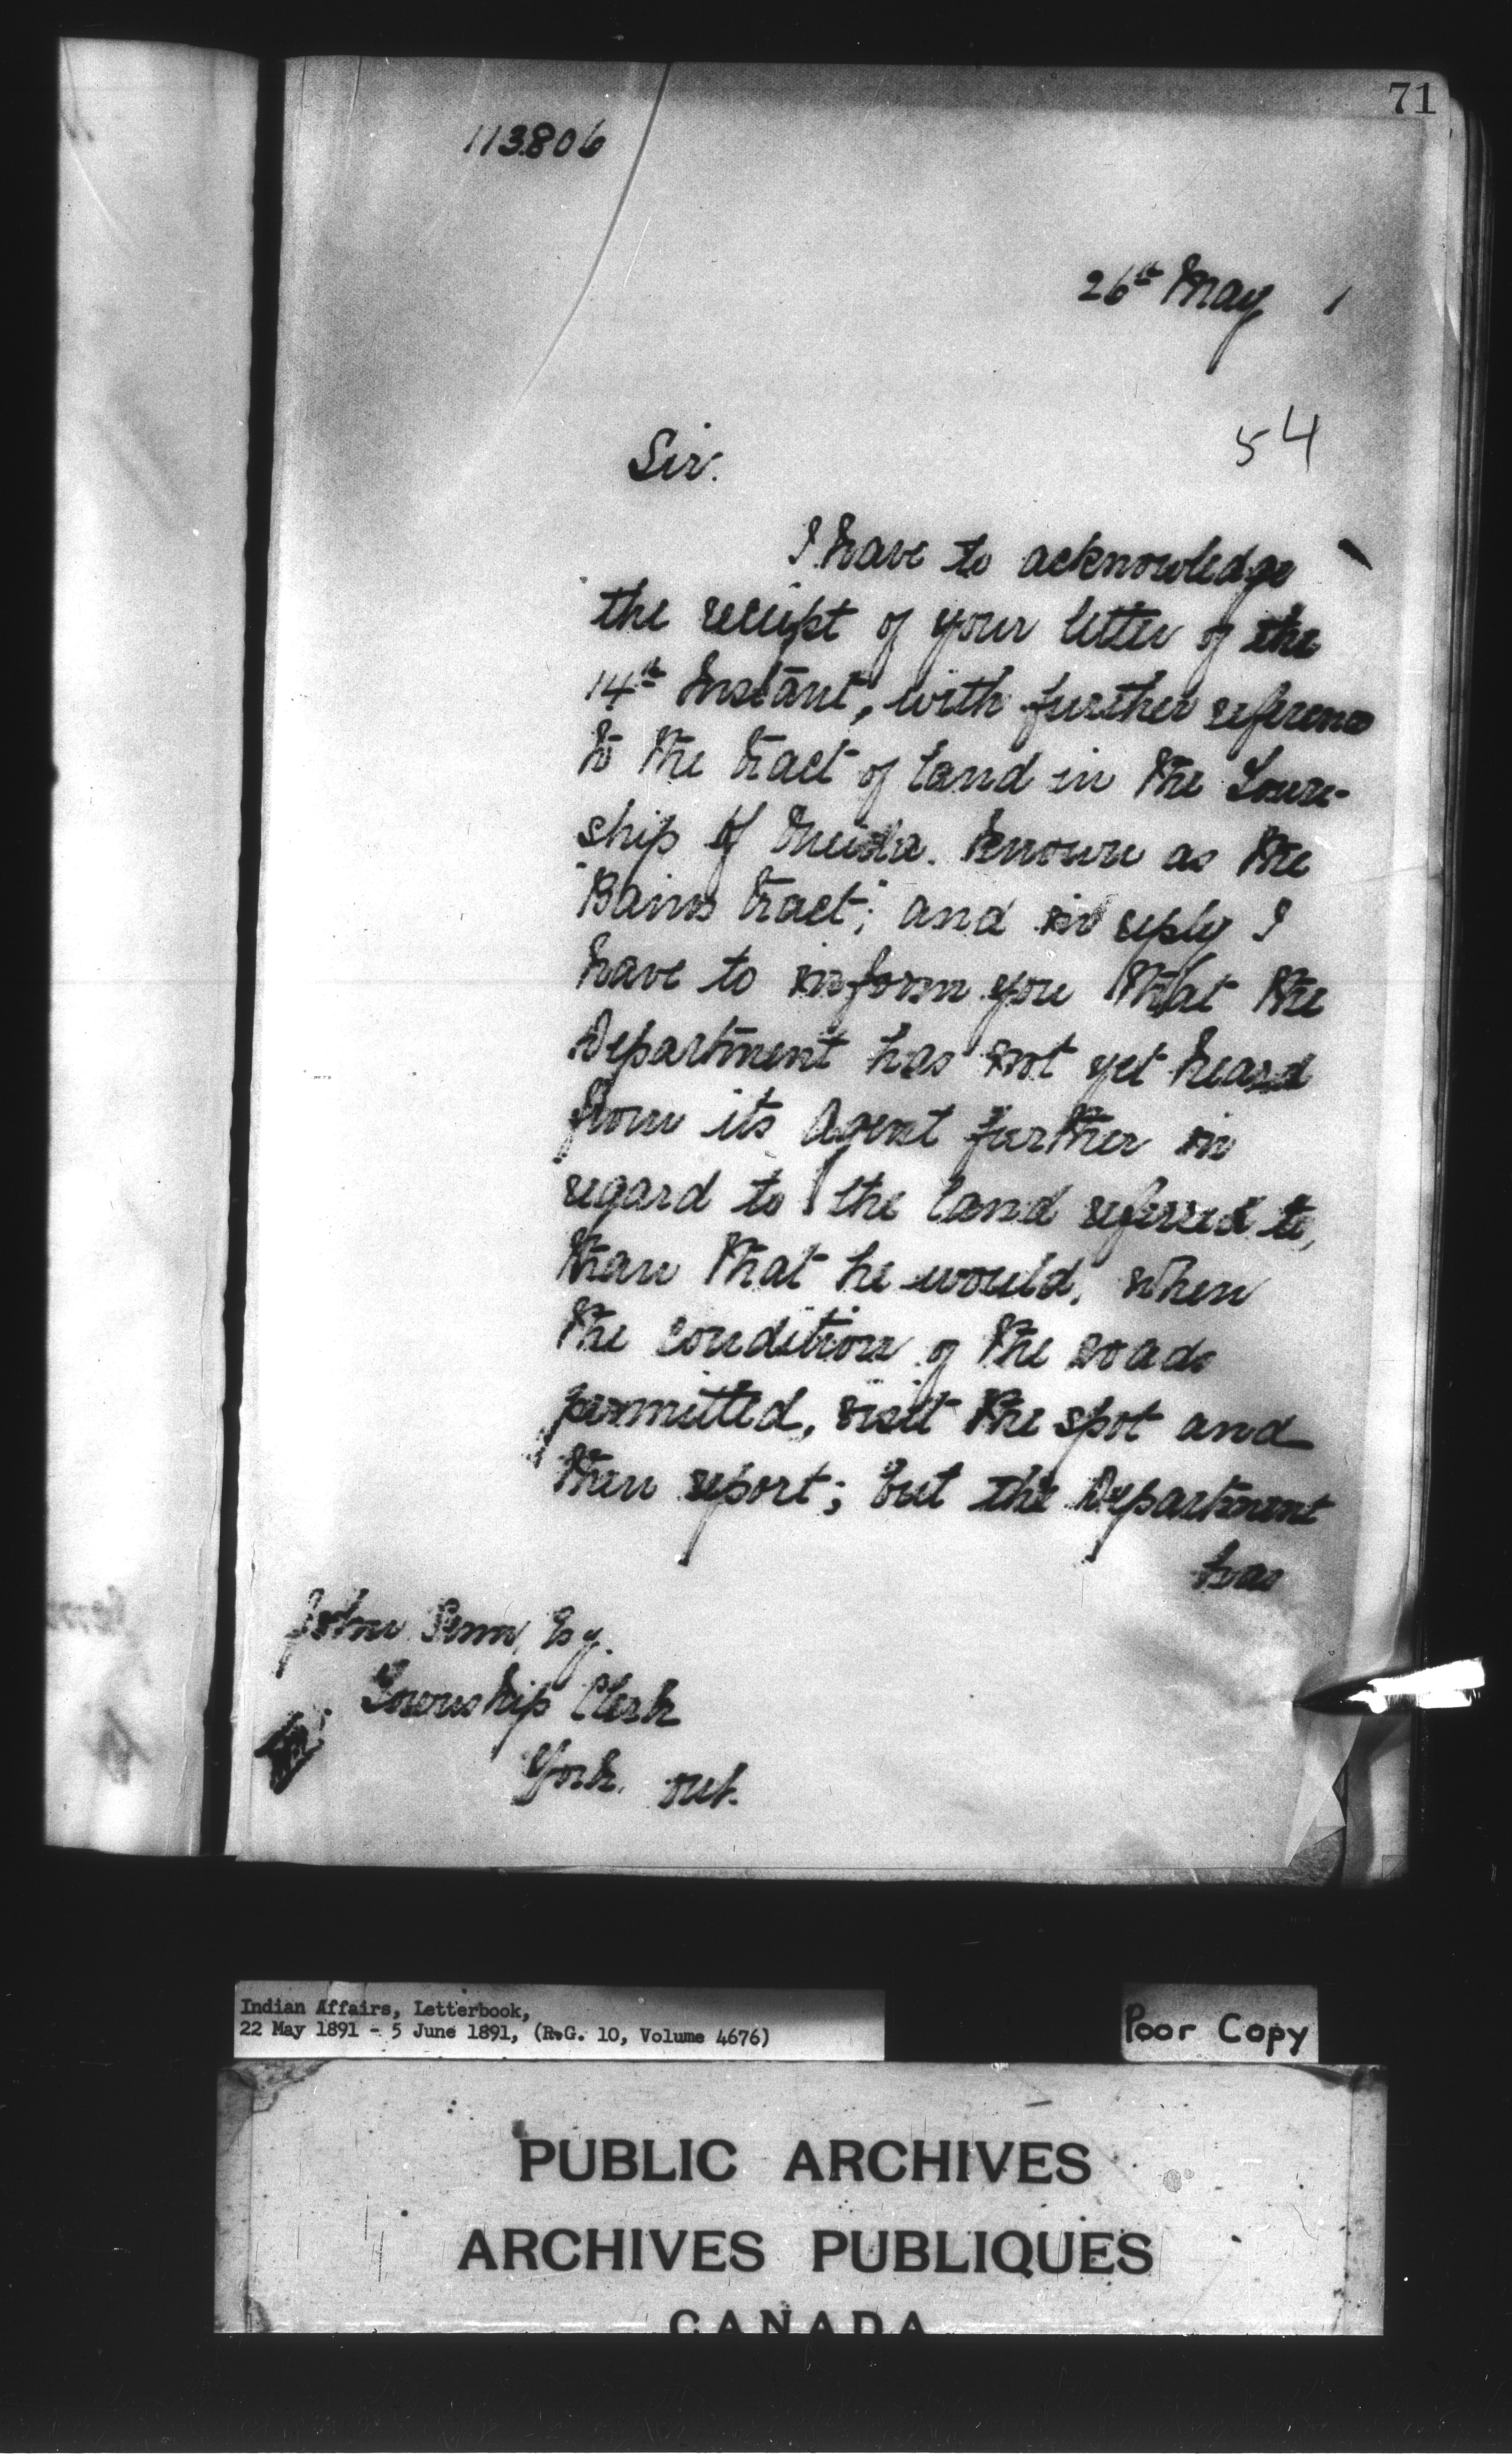 71
113806
26th May 1
54
Sir.
I have to acknowledge
the receipt of your letter of the
14th Instant, with further reference
to the tract of land in the Town-
ship of Oneida. known as the
"Bains tract"; and in reply I
have to inform you that the
Department has not yet heard
from its Agent further in
regard to the land referred to,
than that he would, when
the condition of the roads
permitted, visit the spot and
then report; but the Department
has
John Senn, Esq.
Township Clerk
York. Ont.
Indian Affairs, Letterbook,
22 May 1891 - 5 June 1891, (R.G. 10, Volume 4676)
Poor Copy
PUBLIC ARCHIVES
ARCHIVES PUBLIQUES
CANADA